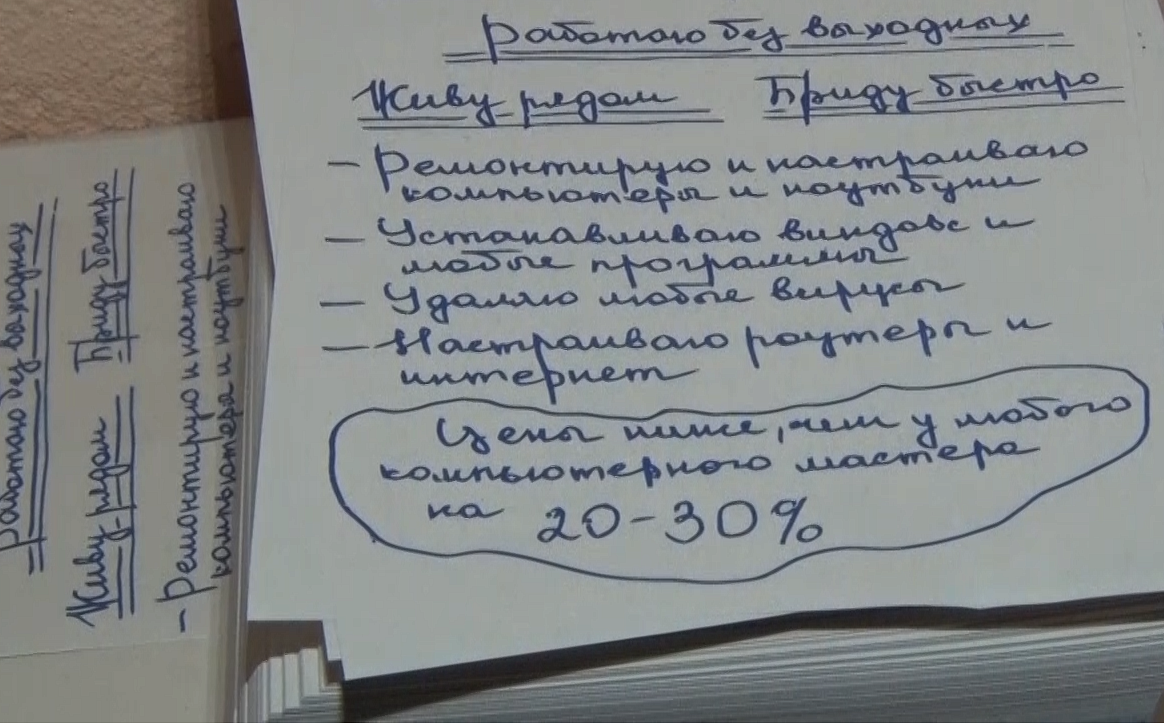 Работаю без выходных
Живу рядом Приду быстро
- Ремонтирую и настраиваю
компьютеры и ноутбуки
- Устанавливаю виндовс и
любые программы
- Удаляю любые вирусы
- Настраиваю роутеры и
интернет
Цены ниже, чем у любого
компьютерного мастера
на 20-30%
Работаю без выходных
Живу рядом Приду быстро
- Ремонтирую и настраиваю
компьютера и ноутбуки